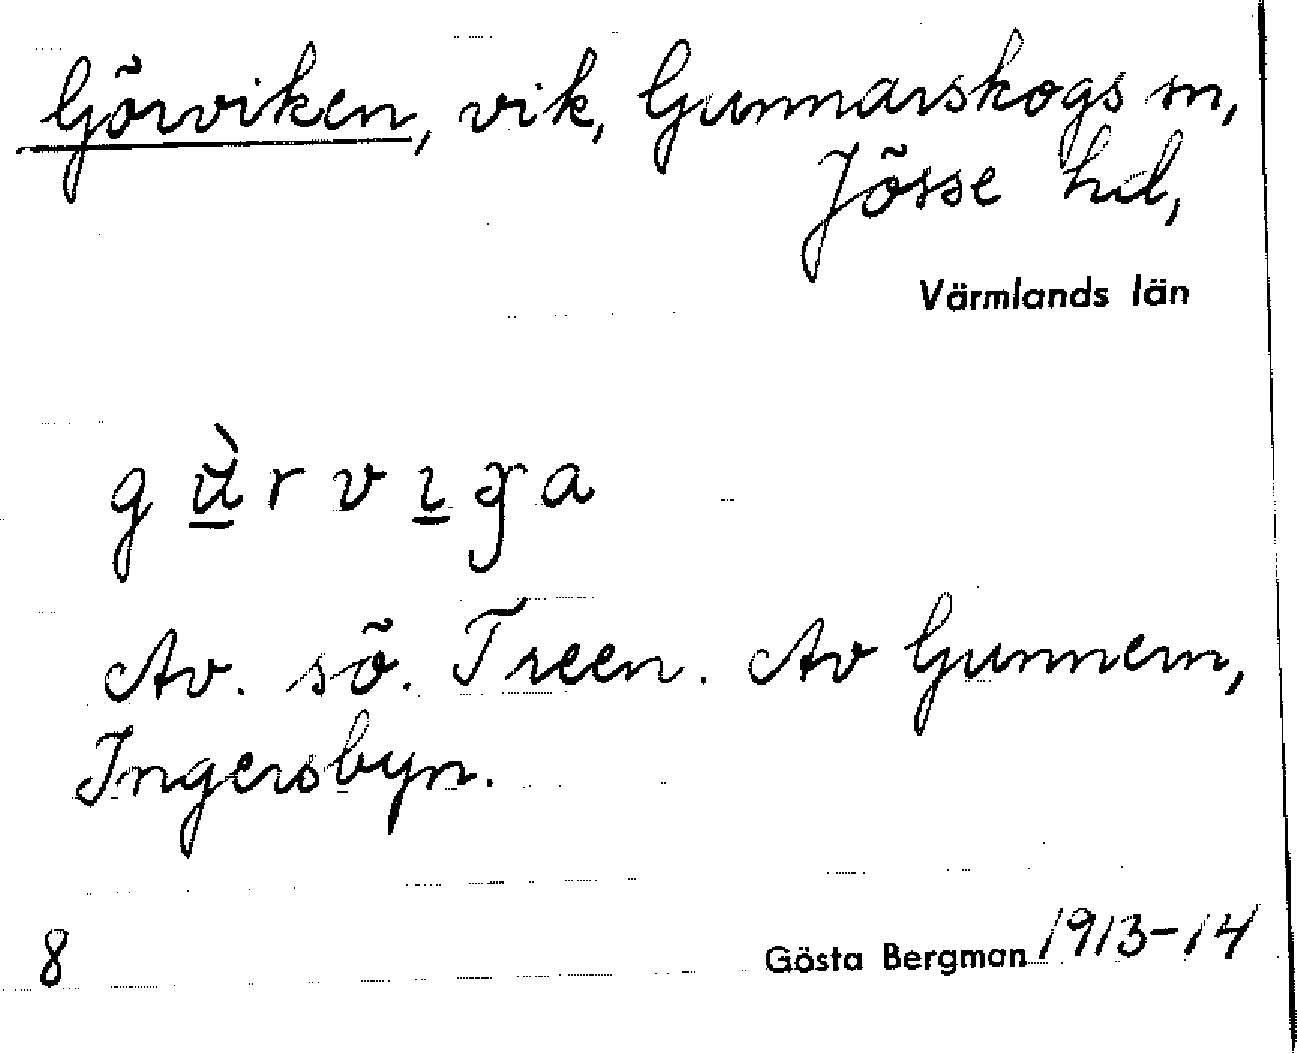 Görviken, vik, Gunnarskogs sn,
Jösse hd,
Värmlands län
Av. sö. Treen. Av Gunnern,
Ingersbyn.
8 Gösta Bergman 1913-14